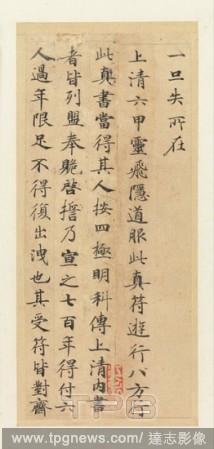 一旦失所在
上清六甲靈飛隱道服此真符遊行八方行
此真書當得其人按四極明科傳上清內書
者皆列盟奉贶啓擔乃宣之七百年得付六
人過年限足不得復出洩也其受符皆對齋
TPG
www.tpgnews.com / 達志影像